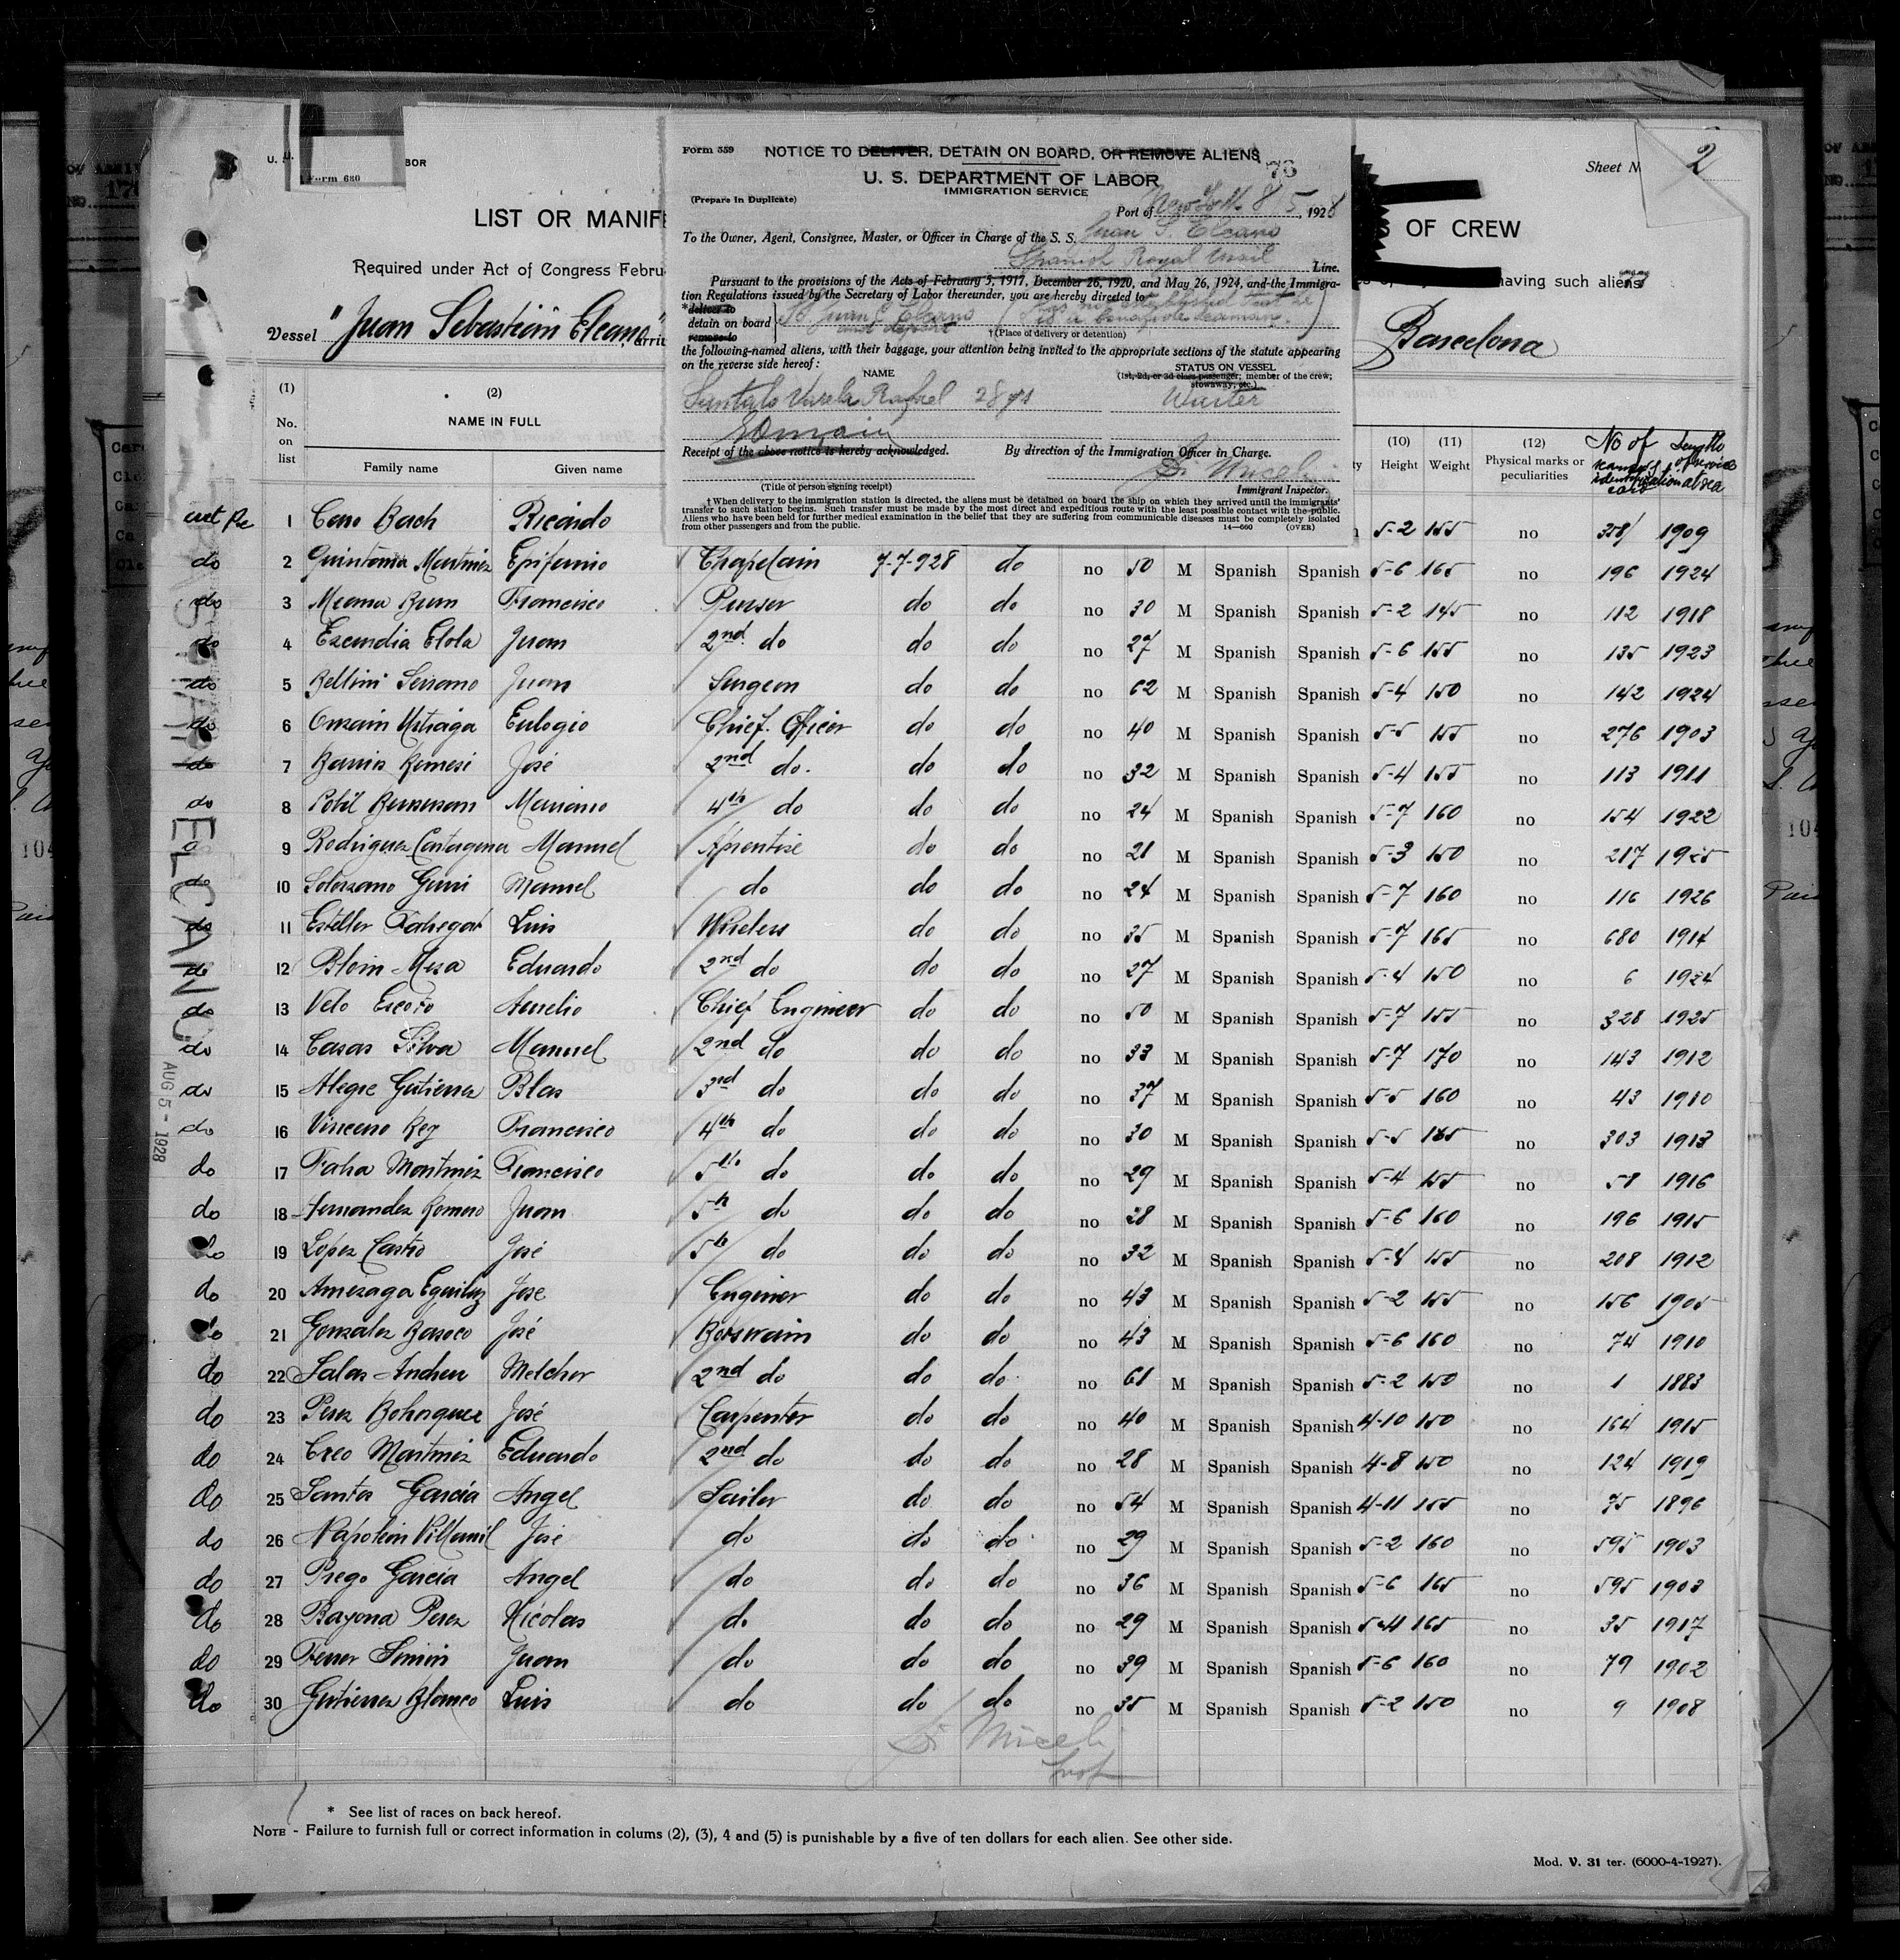 Sheet N
2
U. S.
BOR
Form 680
LIST OR MANIF
S OF CREW
Required under Act of Congress Febru
having such aliens
Vessel "Juan Sebastián Elcano"
Barcelona
Form 359
NOTICE TO DELIVER, DETAIN ON BOARD, OR REMOVE ALIENS
76
U. S. DEPARTMENT OF LABOR
IMMIGRATION SERVICE
(Prepare in Duplicate)
Port of New York 8/5, 1928
To the Owner, Agent, Consignee, Master, or Officer in Charge of the S. S. Juan S. Elcano
Spanish Royal Mail Line.
Pursuant to the provisions of the Acts of February 5, 1917, December 26, 1920, and May 26, 1924, and the Immigra-
tion Regulations issued by the Secretary of Labor thereunder, you are hereby directed to
*deliver to
detain on board
remove to
SS Juan S. Elcano
and deport
(Has not established that he
is a bonafide seaman.)
†(Place of delivery or detention)
the following-named aliens, with their baggage, your attention being invited to the appropriate sections of the statute appearing
on the reverse side hereof:
NAME
STATUS ON VESSEL
(1st, 2d, or 3d class passenger; member of the crew;
stowaway; etc.)
Varela Rafael 28 yrs Waiter
Receipt of the above notice is hereby acknowledged.
By direction of the Immigration Officer in Charge.
(Title of person signing receipt)
Immigrant Inspector.
†When delivery to the immigration station is directed, the aliens must be detained on board the ship on which they arrived until the immigrants'
transfer to such station begins. Such transfer must be made by the most direct and expeditious route with the least possible contact with the public.
Aliens who have been held for further medical examination in the belief that they are suffering from communicable diseases must be completely isolated
from other passengers and from the public.
14—660 (OVER)
(1) (2) (10) (11) (12)
No. on list
NAME IN FULL
Family name Given name
Height Weight Physical marks or peculiarities
No of seaman's identification card
Length of service at sea
1 Cano Bach Ricardo 5-2 155 no 358 1909
do 2 Quintana Martinez Epifanio Chapelain 7-7-928 do no 50 M Spanish Spanish 5-6 165 no 196 1924
do 3 Francisco Purser do do no 30 M Spanish Spanish 5-2 145 no 112 1918
do 4 Escandia Elola Juan 2nd do do do no 27 M Spanish Spanish 5-6 155 no 135 1923
do 5 Bellini Serrano Juan Surgeon do do no 62 M Spanish Spanish 5-4 150 no 142 1924
do 6 Eulogio Chief Oficer do do no 40 M Spanish Spanish 5-5 155 no 276 1903
do 7 José 2nd do. do do no 32 M Spanish Spanish 5-4 155 no 113 1911
do 8 Mariano 4th do do do no 24 M Spanish Spanish 5-7 160 no 154 1922
9 Rodriguez Cartagena Manuel Aprentise do do no 21 M Spanish Spanish 5-3 150 no 217 1925
do 10 Solorzano Manuel do do do no 24 M Spanish Spanish 5-7 160 no 116 1926
do 11 Esteller Luis Wireless do do no 35 M Spanish Spanish 5-7 165 no 680 1914
do 12 Mesa Eduardo 2nd do do do no 27 M Spanish Spanish 5-4 150 no 6 1924
do 13 Velo Escoto Aurelio Chief Engineer do do no 50 M Spanish Spanish 5-7 155 no 328 1925
do 14 Casas Silva Manuel 2nd do do do no 33 M Spanish Spanish 5-7 170 no 143 1912
do 15 Alegre Gutierrez Blas 3rd do do do no 37 M Spanish Spanish 5-5 160 no 43 1910
do 16 Rey Francisco 4th do do do no 30 M Spanish Spanish 5-5 165 no 303 1913
do 17 Martinez Francisco 5th do do do no 29 M Spanish Spanish 5-4 155 no 58 1916
do 18 Fernandez Romero Juan 5th do do do no 28 M Spanish Spanish 5-6 160 no 196 1915
do 19 Lopez Castro José 5th do do do no 32 M Spanish Spanish 5-4 155 no 208 1912
do 20 Amezaga Eguiluz Jose Enginer do do no 43 M Spanish Spanish 5-2 155 no 156 1905
do 21 Gonzalez Basoco José Botswain do do no 43 M Spanish Spanish 5-6 160 no 74 1910
do 22 Salas Andreu Melchor 2nd do do do no 61 M Spanish Spanish 5-2 150 no 1 1883
do 23 Perez Bohorquez José Carpenter do do no 40 M Spanish Spanish 4-10 150 no 164 1915
do 24 Creo Martinez Eduardo 2nd do do do no 28 M Spanish Spanish 4-8 150 no 124 1919
do 25 Santos Garcia Angel Sailor do do no 54 M Spanish Spanish 4-11 155 no 75 1896
do 26 Napoleon Villamil José do do do no 29 M Spanish Spanish 5-2 160 no 595 1903
do 27 Prego Garcia Angel do do do no 36 M Spanish Spanish 5-6 165 no 595 1903
do 28 Bayona Perez Nicolas do do do no 29 M Spanish Spanish 5-4 165 no 35 1917
do 29 Ferrer Simin Juan do do do no 39 M Spanish Spanish 5-6 160 no 79 1902
do 30 Gutierrez Blanco Luis do do do no 35 M Spanish Spanish 5-2 150 no 9 1908
ELCANO
AUG 5 - 1928
* See list of races on back hereof.
NOTE - Failure to furnish full or correct information in colums (2), (3), 4 and (5) is punishable by a five of ten dollars for each alien. See other side.
Mod. V. 31 ter. (6000-4-1927).